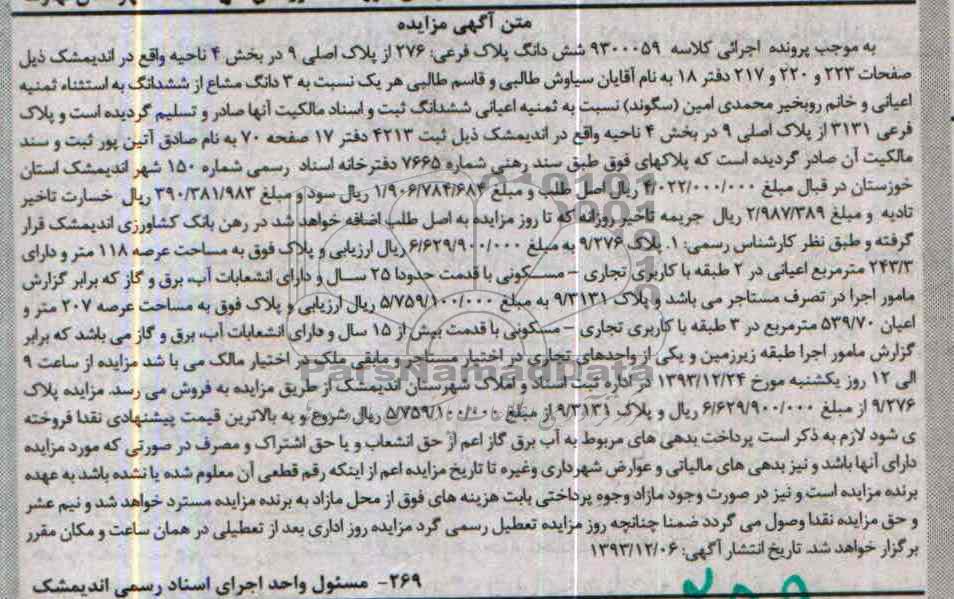 متن آگهی مزایده
به موجب پرونده اجرائی کلاسه ۹۳۰۰۰۵۹ شش دانگ پلاک فرعی: ۲۷۶ از پلاک اصلی ۹ در بخش ۴ ناحیه واقع در اندیمشک ذیل
صفحات ۲۲۳ و ۲۲۰ و ۲۱۷ دفتر ۱۸ به نام آقایان سیاوش طالبی و قاسم طالبی هر یک نسبت به ۳ دانگ مشاع از ششدانگ به استثناء ثمنیه
اعیانی و خانم روبخیر محمدی امین (سگوند) نسبت به ثمنیه اعیانی ششدانگ ثبت و اسناد مالکیت آنها صادر و تسلیم گردیده است و پلاک
فرعی ۳۱۳۱ از پلاک اصلی ۹ در بخش ۴ ناحیه واقع در اندیمشک ذیل ثبت ۴۲۱۳ دفتر ۱۷ صفحه ۷۰ به نام صادق آتین پور ثبت و سند
مالکیت آن صادر گردیده است که پلاکهای فوق طبق سند رهنی شماره ۷۶۶۵ دفترخانه اسناد رسمی شماره ۱۵۰ شهر اندیمشک استان
خوزستان در قبال مبلغ ۴/۰۲۲/۰۰۰/۰۰۰ ریال اصل طلب و مبلغ ۱/۹۰۶/۷۸۴/۶۸۴ ریال سود و مبلغ ۳۹۰/۳۸۱/۹۸۳ ریال خسارت تاخیر
تادیه و مبلغ ۲/۹۸۷/۳۸۹ ریال جریمه تاخیر روزانه که تا روز مزایده به اصل طلب اضافه خواهد شد در رهن بانک کشاورزی اندیمشک قرار
گرفته و طبق نظر کارشناس رسمی: ۱. پلاک ۹/۲۷۶ به مبلغ ۶/۶۲۹/۹۰۰/۰۰۰ ریال ارزیابی و پلاک فوق به مساحت عرصه ۱۱۸ متر و دارای
۲۴۳/۳ مترمربع اعیانی در ۲ طبقه با کاربری تجاری – مسکونی با قدمت حدودا ۲۵ سال و دارای انشعابات آب، برق و گاز که برابر گزارش
مامور اجرا در تصرف مستاجر می باشد و پلاک ۹/۳۱۳۱ به مبلغ ۵/۷۵۹/۱۰۰/۰۰۰ ریال ارزیابی و پلاک فوق به مساحت عرصه ۲۰۷ متر و
اعیان ۵۳۹/۷۰ مترمربع در ۳ طبقه با کاربری تجاری – مسکونی با قدمت بیش از ۱۵ سال و دارای انشعابات آب، برق و گاز می باشد که برابر
گزارش مامور اجرا طبقه زیرزمین و یکی از واحدهای تجاری در اختیار مستاجر و مابقی ملک در اختیار مالک می با شد مزایده از ساعت ۹
الی ۱۲ روز یکشنبه مورخ ۱۳۹۳/۱۲/۲۴ در اداره ثبت اسناد و املاک شهرستان اندیمشک از طریق مزایده به فروش می رسد. مزایده پلاک
۹/۲۷۶ از مبلغ ۶/۶۲۹/۹۰۰/۰۰۰ ریال و پلاک ۹/۳۱۳۱ از مبلغ ۵/۷۵۹/۱۰۰/۰۰۰ ریال شروع و به بالاترین قیمت پیشنهادی نقدا فروخته
ی شود لازم به ذکر است پرداخت بدهی های مربوط به آب برق گاز اعم از حق انشعاب و یا حق اشتراک و مصرف در صورتی که مورد مزایده
دارای آنها باشد و نیز بدهی های مالیاتی و عوارض شهرداری وغیره تا تاریخ مزایده اعم از اینکه رقم قطعی آن معلوم شده یا نشده باشد به عهده
برنده مزایده است و نیز در صورت وجود مازاد وجوه پرداختی بابت هزینه های فوق از محل مازاد به برنده مزایده مسترد خواهد شد و نیم عشر
و حق مزایده نقدا وصول می گردد ضمنا چنانچه روز مزایده تعطیل رسمی گرد مزایده روز اداری بعد از تعطیلی در همان ساعت و مکان مقرر
برگزار خواهد شد. تاریخ انتشار آگهی: ۱۳۹۳/۱۲/۰۶
۲۶۹- مسئول واحد اجرای اسناد رسمی اندیمشک
ParsNamadData